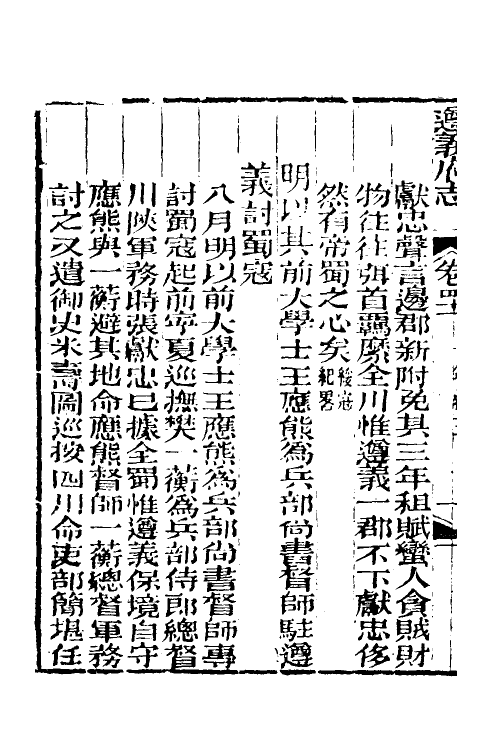 遵義府志
卷四十
獻忠聲言邊郡新附免其三年租賦蠻人貪賊財
物往往弭首羈縻全川惟遵義一郡不下獻忠侈
然有帝蜀之心矣綏寇紀畧
明以其前大學士王應熊爲兵部尚書督師駐遵
義討蜀寇
八月明以前大學士王應熊爲兵部尚書督師專
討蜀寇起前寧夏巡撫樊一蘅爲兵部侍郎總督
川陝軍務時張獻忠已據全蜀惟遵義保境自守
應熊與一蘅避其地命應熊督師一蘅總督軍務
討之又遣御史米壽圖巡按四川命吏部簡堪任